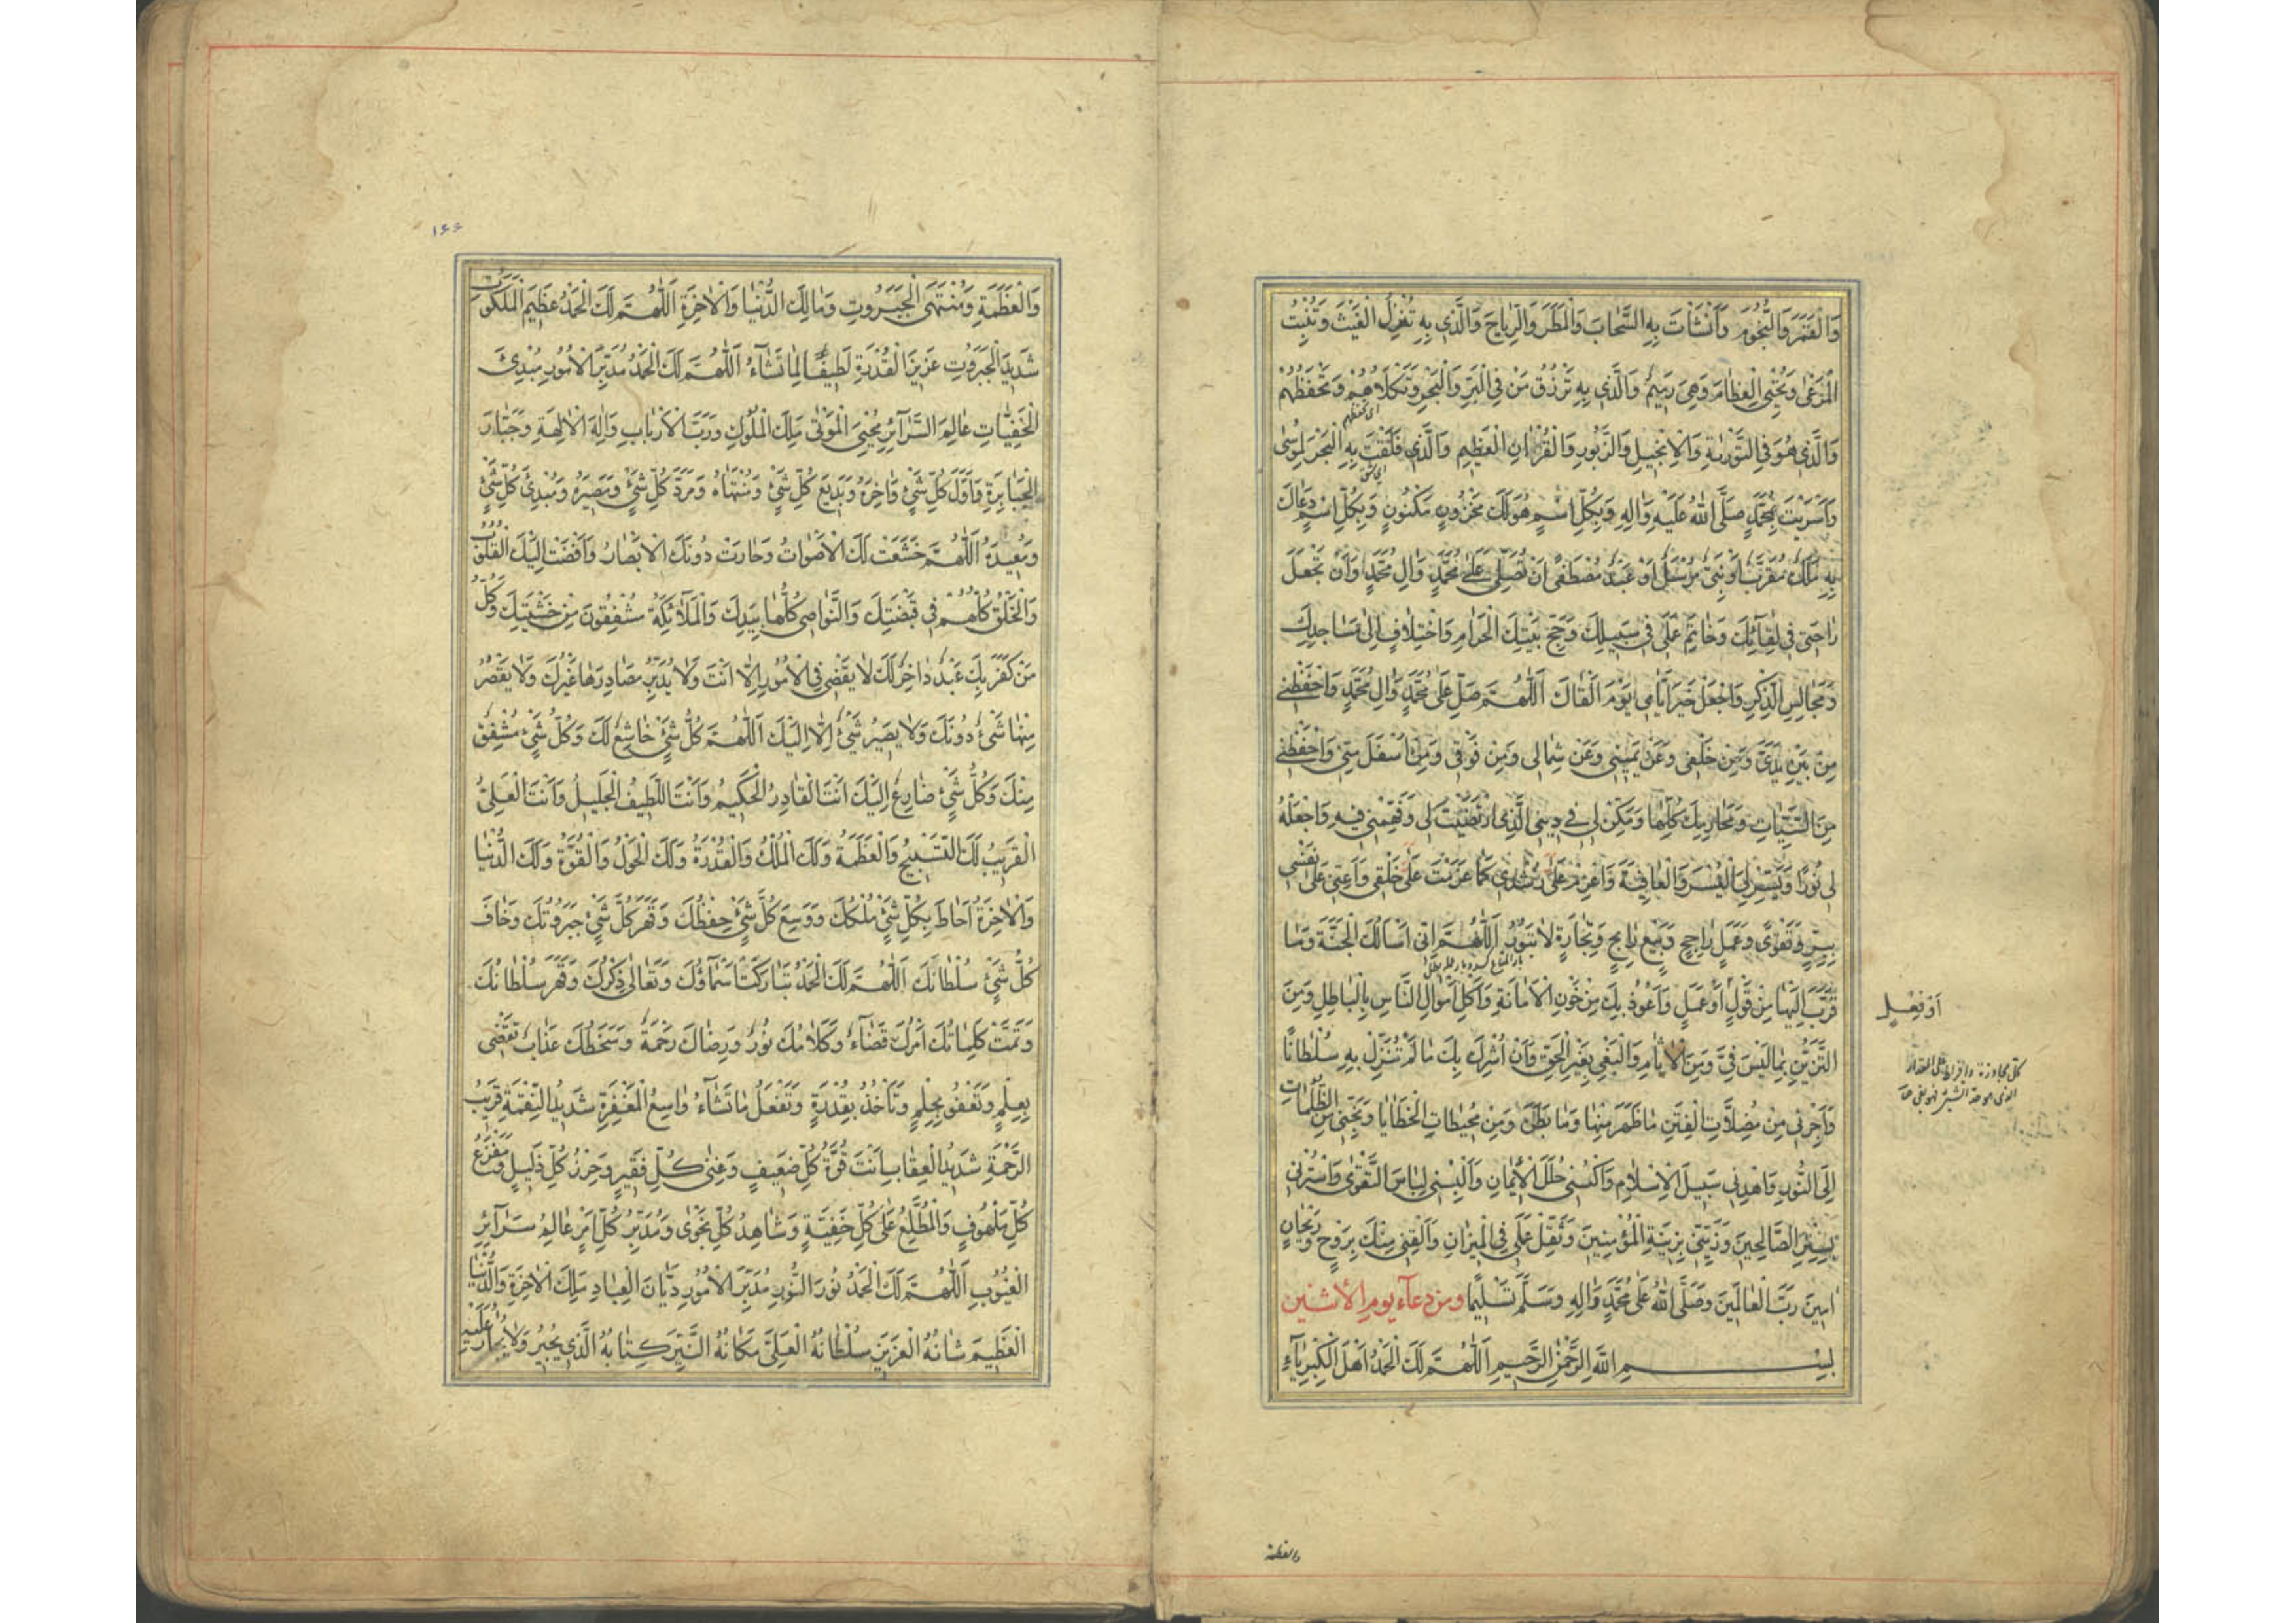 وَالْقَمَرَ وَالنُّجُومَ وَأَنْشَأْتَ بِهِ السَّحَابَ وَالْمَطَرَ وَالرِّيَاحَ وَالَّذِي بِهِ تُنْزِلُ الْغَيْثَ وَتُنْبِتُ
الْمَرْعَىٰ وَتُحْيِي الْعِظَامَ وَهِيَ رَمِيمٌ وَالَّذِي بِهِ تَرْزُقُ مَنْ فِي الْبَرِّ وَالْبَحْرِ وَتَكْلَأُهُمْ وَتَحْفَظُهُمْ
وَالَّذِي هُوَ فِي التَّوْرٰيةِ وَالْإِنْجِيلِ وَالزَّبُورِ وَالْقُرْآنِ الْعَظِيمِ وَالَّذِي فَلَقْتَ بِهِ الْبَحْرَ لِمُوسَىٰ
وَأَسْرَيْتَ بِمُحَمَّدٍ صَلَّى اللهُ عَلَيْهِ وَآلِهِ وَبِكُلِّ اسْمٍ هُوَ لَكَ مَخْزُونٍ مَكْنُونٍ وَبِكُلِّ اسْمٍ دَعَاكَ
بِهِ مَلَكٌ مُقَرَّبٌ أَوْ نَبِيٌّ مُرْسَلٌ أَوْ عَبْدٌ مُصْطَفًى أَنْ تُصَلِّيَ عَلَىٰ مُحَمَّدٍ وَآلِ مُحَمَّدٍ وَأَنْ تَجْعَلَ
رَاحَتِي فِي لِقَائِكَ وَخَاتِمَ عَمَلِي فِي سَبِيلِكَ وَحَجِّ بَيْتِكَ الْحَرَامِ وَاخْتِلَافٍ إِلَىٰ مَسَاجِدِكَ
وَمَجَالِسِ الذِّكْرِ وَاجْعَلْ خَيْرَ أَيَّامِي يَوْمَ أَلْقَاكَ اَللّٰهُمَّ صَلِّ عَلَىٰ مُحَمَّدٍ وَآلِ مُحَمَّدٍ وَاحْفَظْنِي
مِنْ بَيْنِ يَدَيَّ وَمِنْ خَلْفِي وَعَنْ يَمِينِي وَعَنْ شِمَالِي وَمِنْ فَوْقِي وَمِنْ أَسْفَلَ مِنِّي وَاحْفَظْنِي
مِنَ السَّيِّئَاتِ وَمَحَارِمِكَ كُلِّهَا وَمَكِّنْ لِي فِي دِينِيَ الَّذِي ارْتَضَيْتَ لِي وَفَهِّمْنِي فِيهِ وَاجْعَلْهُ
لِي نُورًا وَيَسِّرْ لِيَ الْيُسْرَ وَالْعَافِيَةَ وَاعْزِمْ عَلَىٰ رُشْدِي كَمَا عَزَمْتَ عَلَىٰ خَلْقِي وَأَعِنِّي عَلَىٰ نَفْسِي
بِبِرٍّ وَتَقْوًى وَعَمَلٍ رَاجِحٍ وَبَيْعٍ رَابِحٍ وَتِجَارَةٍ لَا تَبُورُ اَللّٰهُمَّ إِنِّي أَسْأَلُكَ الْجَنَّةَ وَمَا
قَرَّبَ إِلَيْهَا مِنْ قَوْلٍ أَوْ عَمَلٍ وَأَعُوذُ بِكَ مِنْ خَوْنِ الْأَمَانَةِ وَأَكْلِ أَمْوَالِ النَّاسِ بِالْبَاطِلِ وَمِنَ
أَوْ فِعْلٍ
التَّزَيُّنِ بِمَا لَيْسَ فِيَّ وَمِنَ الْآثَامِ وَالْبَغْيِ بِغَيْرِ الْحَقِّ وَأَنْ أُشْرِكَ بِكَ مَا لَمْ تُنَزِّلْ بِهِ سُلْطَانًا
وَأَجِرْنِي مِنْ مُضِلَّاتِ الْفِتَنِ مَا ظَهَرَ مِنْهَا وَمَا بَطَنَ وَمِنْ مُحِيطَاتِ الْخَطَايَا وَنَجِّنِي مِنَ الظُّلُمَاتِ
إِلَى النُّورِ وَاهْدِنِي سَبِيلَ الْإِسْلَامِ وَاكْسُنِي حُلَلَ الْإِيمَانِ وَأَلْبِسْنِي لِبَاسَ التَّقْوَىٰ وَاسْتُرْنِي
بِسِتْرِ الصَّالِحِينَ وَزَيِّنِّي بِزِينَةِ الْمُؤْمِنِينَ وَثَقِّلْ عَمَلِي فِي الْمِيزَانِ وَالْقِنِي مِنْكَ بِرَوْحٍ وَرَيْحَانٍ
آمِينَ رَبَّ الْعَالَمِينَ وَصَلَّى اللهُ عَلَىٰ مُحَمَّدٍ وَآلِهِ وَسَلَّمَ تَسْلِيمًا ومن دعاء يوم الاثنين
بِسْمِ اللهِ الرَّحْمٰنِ الرَّحِيمِ اَللّٰهُمَّ لَكَ الْحَمْدُ أَهْلَ الْكِبْرِيَاءِ
والعظمة
١٤٤
وَالْعَظَمَةِ وَمُنْتَهَى الْجَبَرُوتِ وَمَالِكَ الدُّنْيَا وَالْآخِرَةِ اَللّٰهُمَّ لَكَ الْحَمْدُ عَظِيمَ الْمَلَكُوتِ
شَدِيدَ الْجَبَرُوتِ عَزِيزَ الْقُدْرَةِ لَطِيفًا لِمَا تَشَاءُ اَللّٰهُمَّ لَكَ الْحَمْدُ مُدَبِّرَ الْأُمُورِ مُبْدِئَ
الْخَفِيَّاتِ عَالِمَ السَّرَائِرِ مُحْيِيَ الْمَوْتَىٰ مَلِكَ الْمُلُوكِ وَرَبَّ الْأَرْبَابِ وَإِلٰهَ الْآلِهَةِ وَجَبَّارَ
الْجَبَابِرَةِ وَأَوَّلَ كُلِّ شَيْءٍ وَآخِرَهُ وَبَدِيعَ كُلِّ شَيْءٍ وَمُنْتَهَاهُ وَمَرَدَّ كُلِّ شَيْءٍ وَمَصِيرَهُ وَمُبْدِئَ كُلِّ شَيْءٍ
وَمُعِيدَهُ اَللّٰهُمَّ خَشَعَتْ لَكَ الْأَصْوَاتُ وَحَارَتْ دُونَكَ الْأَبْصَارُ وَأَفْضَتْ إِلَيْكَ الْقُلُوبُ
وَالْخَلْقُ كُلُّهُمْ فِي قَبْضَتِكَ وَالنَّوَاصِي كُلُّهَا بِيَدِكَ وَالْمَلَائِكَةُ مُشْفِقُونَ مِنْ خَشْيَتِكَ وَكُلُّ
مَنْ كَفَرَ بِكَ عَبْدٌ دَاخِرٌ لَكَ لَا يَقْضِي فِي الْأُمُورِ إِلَّا أَنْتَ وَلَا يُدَبِّرُ مَصَادِرَهَا غَيْرُكَ وَلَا يَقْصُرُ
مِنْهَا شَيْءٌ دُونَكَ وَلَا يَصِيرُ شَيْءٌ إِلَّا إِلَيْكَ اَللّٰهُمَّ كُلُّ شَيْءٍ خَاشِعٌ لَكَ وَكُلُّ شَيْءٍ مُشْفِقٌ
مِنْكَ وَكُلُّ شَيْءٍ ضَارِعٌ إِلَيْكَ أَنْتَ الْقَادِرُ الْحَكِيمُ وَأَنْتَ اللَّطِيفُ الْجَلِيلُ وَأَنْتَ الْعَلِيُّ
الْقَرِيبُ لَكَ التَّسْبِيحُ وَالْعَظَمَةُ وَلَكَ الْمُلْكُ وَالْقُدْرَةُ وَلَكَ الْحَوْلُ وَالْقُوَّةُ وَلَكَ الدُّنْيَا
وَالْآخِرَةُ أَحَاطَ بِكُلِّ شَيْءٍ مُلْكُكَ وَوَسِعَ كُلَّ شَيْءٍ حِفْظُكَ وَقَهَرَ كُلَّ شَيْءٍ جَبَرُوتُكَ وَخَافَ
كُلُّ شَيْءٍ سُلْطَانَكَ اَللّٰهُمَّ لَكَ الْحَمْدُ تَبَارَكَتْ أَسْمَاؤُكَ وَتَعَالَىٰ ذِكْرُكَ وَقَهَرَ سُلْطَانُكَ
وَتَمَّتْ كَلِمَاتُكَ أَمْرُكَ قَضَاءٌ وَكَلَامُكَ نُورٌ وَرِضَاكَ رَحْمَةٌ وَسَخَطُكَ عَذَابٌ تَقْضِي
بِعِلْمٍ وَتَعْفُو بِحِلْمٍ وَتَأْخُذُ بِقُدْرَةٍ وَتَفْعَلُ مَا تَشَاءُ وَاسِعُ الْمَغْفِرَةِ شَدِيدُ النَّقِمَةِ قَرِيبُ
الرَّحْمَةِ شَدِيدُ الْعِقَابِ أَنْتَ قُوَّةُ كُلِّ ضَعِيفٍ وَغِنَىٰ كُلِّ فَقِيرٍ وَحِرْزُ كُلِّ ذَلِيلٍ وَمَفْزَعُ
كُلِّ مَلْهُوفٍ وَالْمُطَّلِعُ عَلَىٰ كُلِّ خَفِيَّةٍ وَشَاهِدُ كُلِّ نَجْوَىٰ وَمُدَبِّرُ كُلِّ أَمْرٍ عَالِمُ سَرَائِرِ
الْغُيُوبِ اَللّٰهُمَّ لَكَ الْحَمْدُ نُورَ النُّورِ مُدَبِّرَ الْأُمُورِ دَيَّانَ الْعِبَادِ مَلِكَ الْآخِرَةِ وَالدُّنْيَا
الْعَظِيمَ شَانُهُ الْعَزِيزَ سُلْطَانُهُ الْعَلِيَّ مَكَانُهُ النَّيِّرَ كِتَابُهُ الَّذِي يُجِيرُ وَلَا يُجَارُ عَلَيْهِ